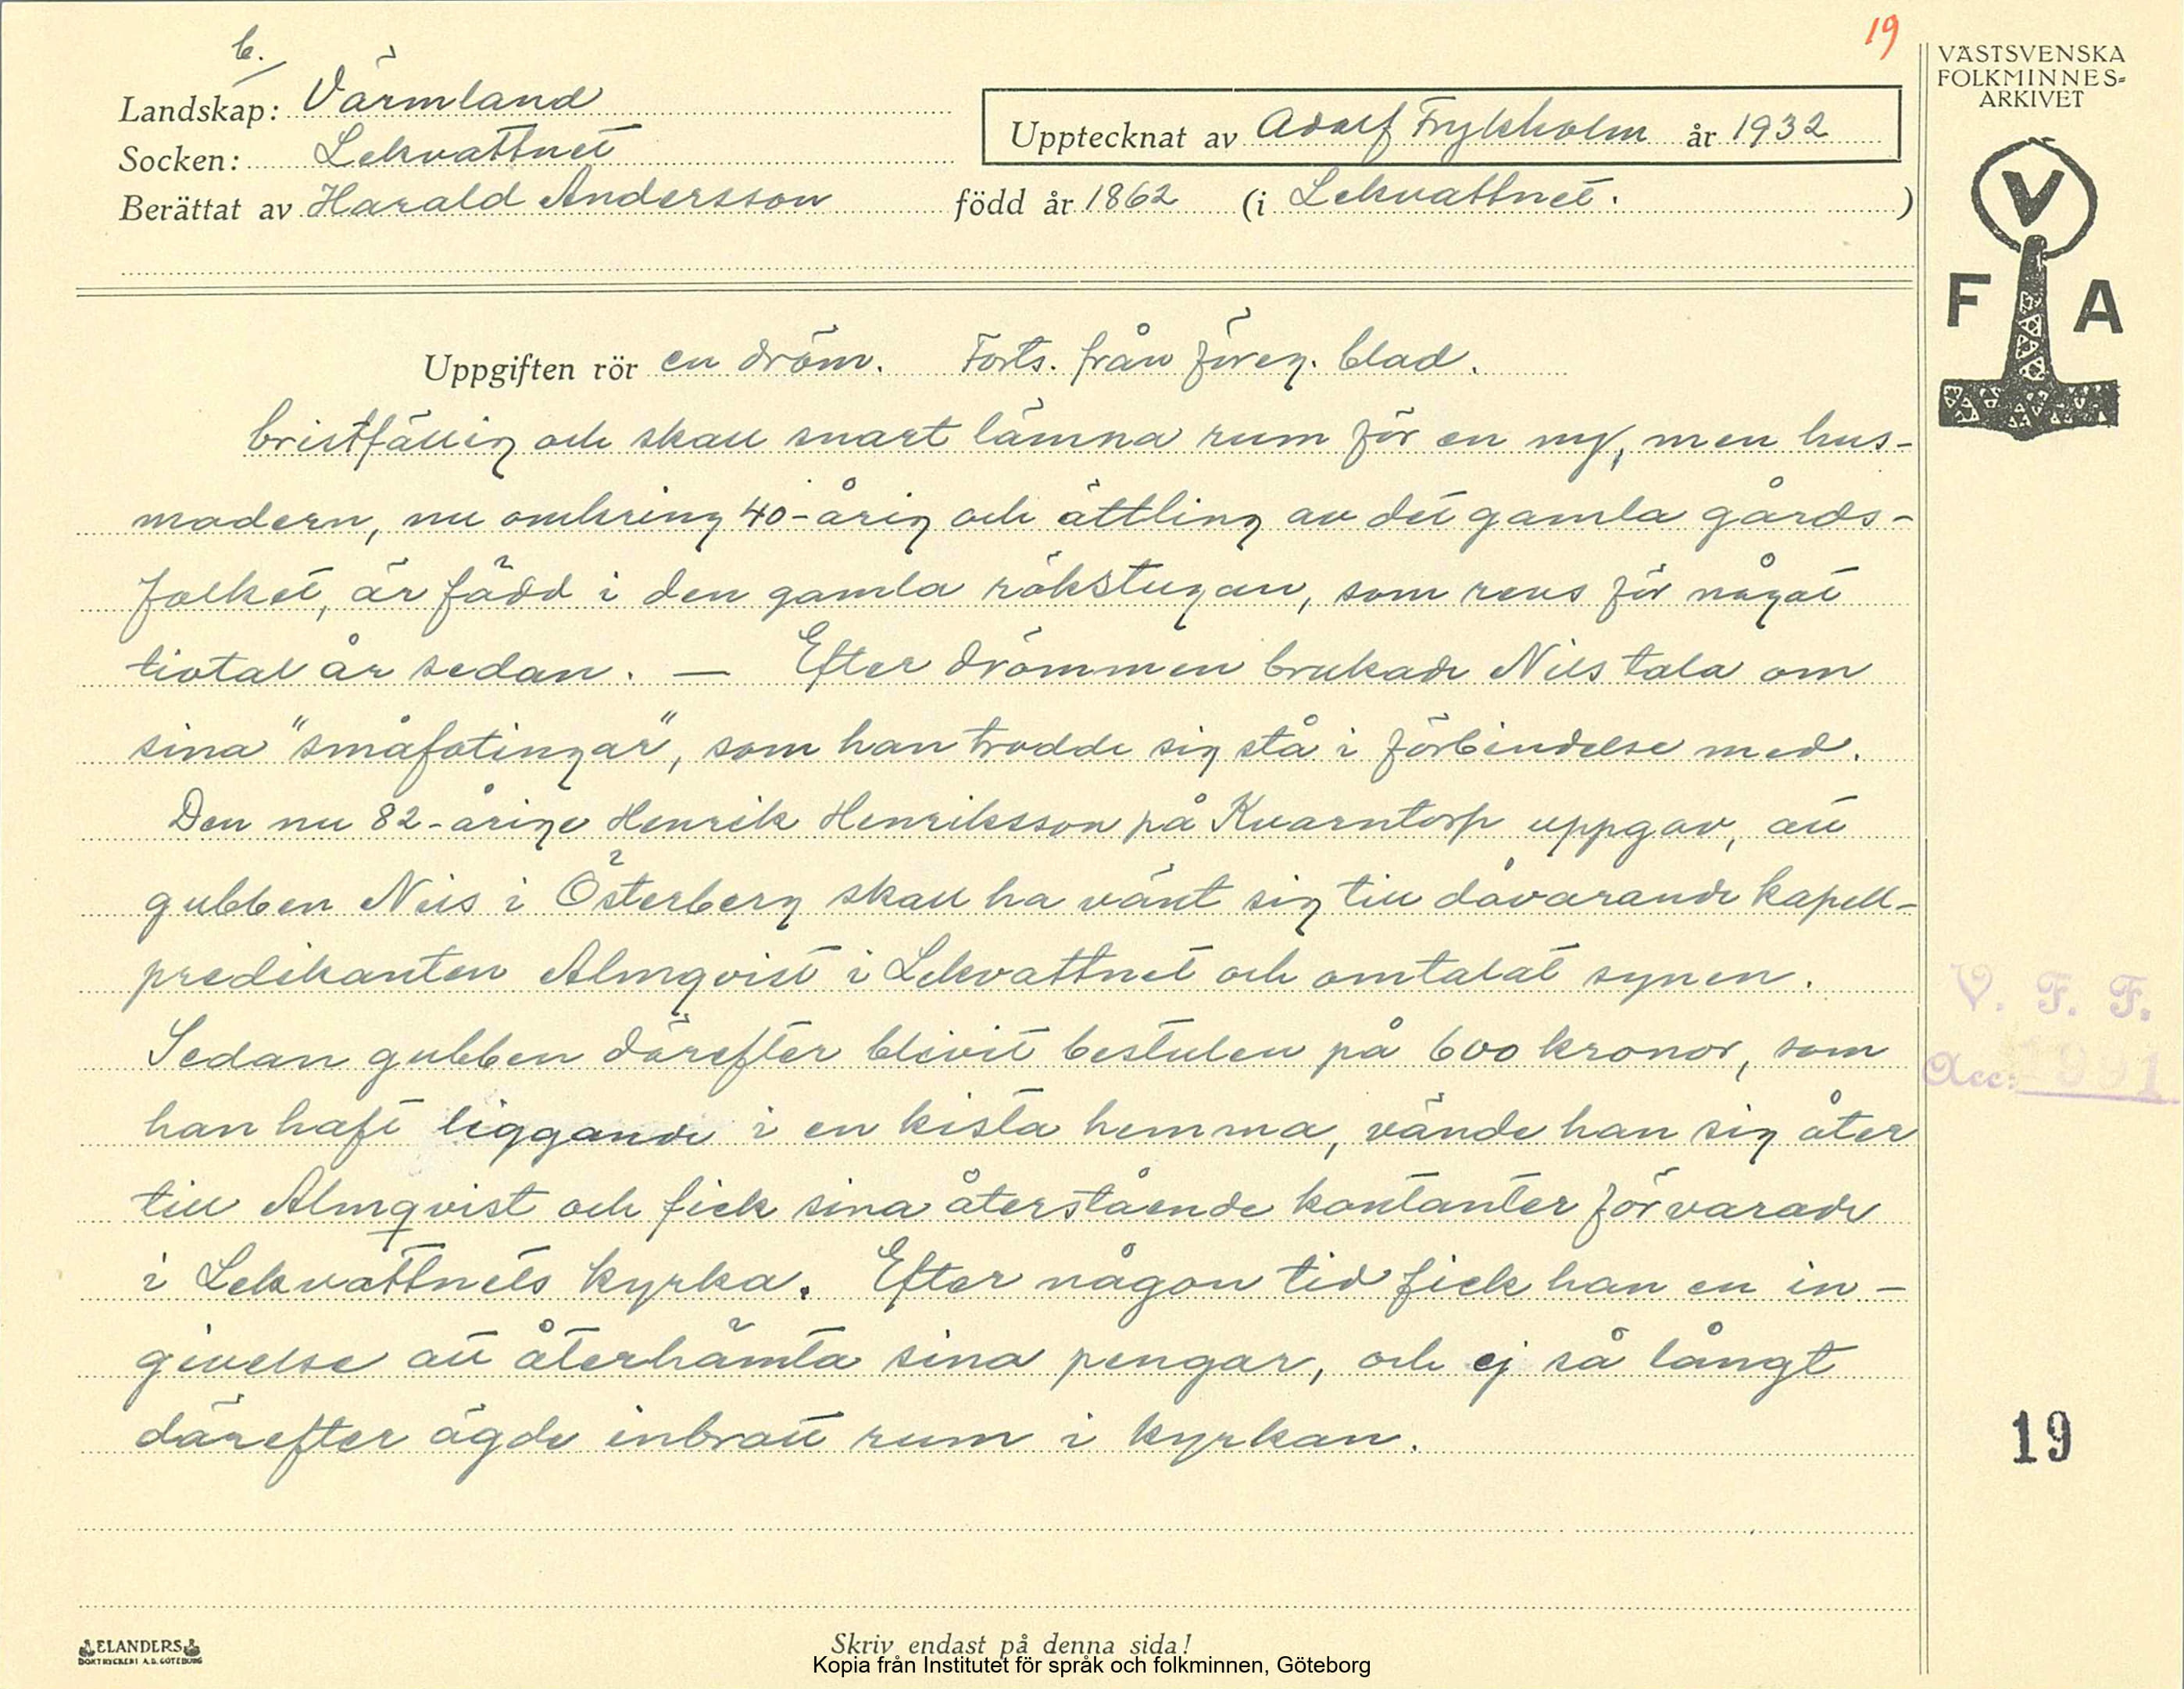 6.
19
Landskap: Värmland
Socken: Lekvattnet
Berättat av Harald Andersson född år 1862 (i Lekvattnet. )
Upptecknat av Adolf Frykholm år 1932
VÄSTSVENSKA
FOLKMINNES=
ARKIVET
V
F A
Uppgiften rör en dröm. Forts. från föreg. blad.
bristfällig och skall snart lämna rum för en ny, men hus-
modern, nu omkring 40-årig och ättling av det gamla gårds-
folket, är född i den gamla rökstugan, som revs för något
tiotal år sedan. — Efter drömmen brukade Nils tala om
sina "småfotingar", som han trodde sig stå i förbindelse med.
Den nu 82-årige Henrik Henriksson på Kvarntorp uppgav, att
gubben Nils i Österberg skall ha vänt sig till dåvarande kapell-
predikanten Almqvist i Lekvattnet och omtalat synen.
Sedan gubben därefter blivit bestulen på 600 kronor, som
han haft liggande i en kista hemma, vände han sig åter
till Almqvist och fick sina återstående kontanter förvarade
i Lekvattnets kyrka. Efter någon tid fick han en in-
givelse att återhämta sina pengar, och ej så långt
därefter ägde inbrott rum i kyrkan.
V. F. F.
Acc:
19
ELANDERS
BOKTRYCKERI A.B. GÖTEBORG
Skriv endast på denna sida!
Kopia från Institutet för språk och folkminnen, Göteborg